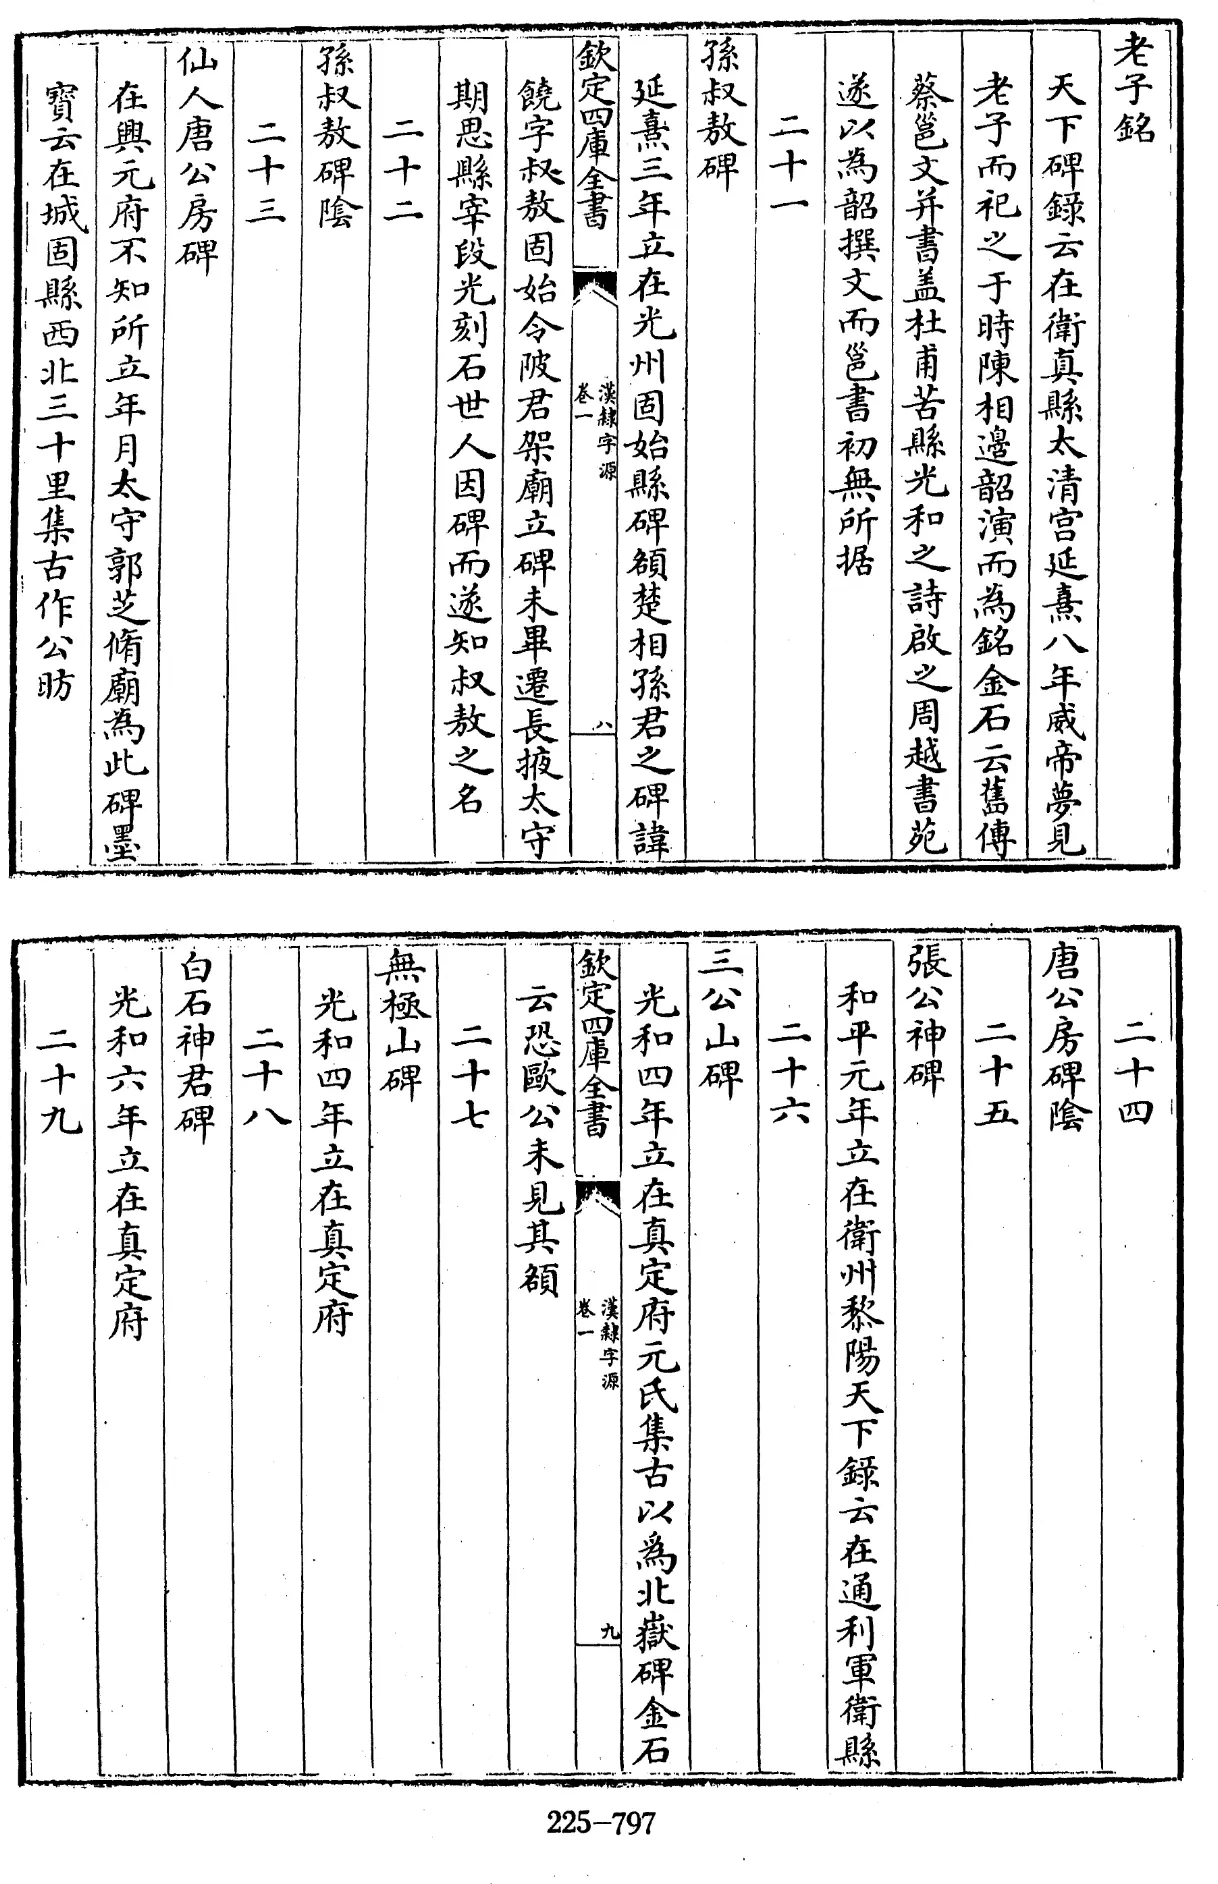 老子銘
天下碑録云在衛真縣太清宫延熹八年威帝夢見
老子而祀之于時陳相邉韶演而為銘金石云舊傳
蔡邕文并書盖杜甫苦縣光和之詩啟之周越書苑
遂以為韶撰文而邕書初無所据
二十一
孫叔敖碑
延熹三年立在光州固始縣碑額楚相孫君之碑諱
欽定四庫全書
漢隸字源
卷一
八
饒字叔敖固始令陂君架廟立碑未畢遷長掖太守
期思縣宰段光刻石世人因碑而遂知叔敖之名
二十二
孫叔敖碑陰
二十三
仙人唐公房碑
在興元府不知所立年月太守郭芝脩廟為此碑墨
寳云在城固縣西北三十里集古作公昉
二十四
唐公房碑陰
二十五
張公神碑
和平元年立在衛州黎陽天下録云在通利軍衛縣
二十六
三公山碑
光和四年立在真定府元氏集古以爲北嶽碑金石
欽定四庫全書
漢隸字源
卷一
九
云恐歐公未見其額
二十七
無極山碑
光和四年立在真定府
二十八
白石神君碑
光和六年立在真定府
二十九
225-797